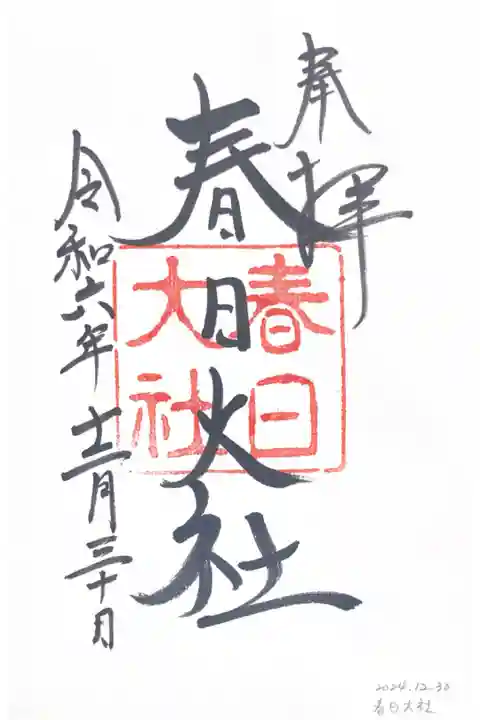 奉拝
春日大社
春日
大社
令和六年十二月三十日
2024.12.30
春日大社